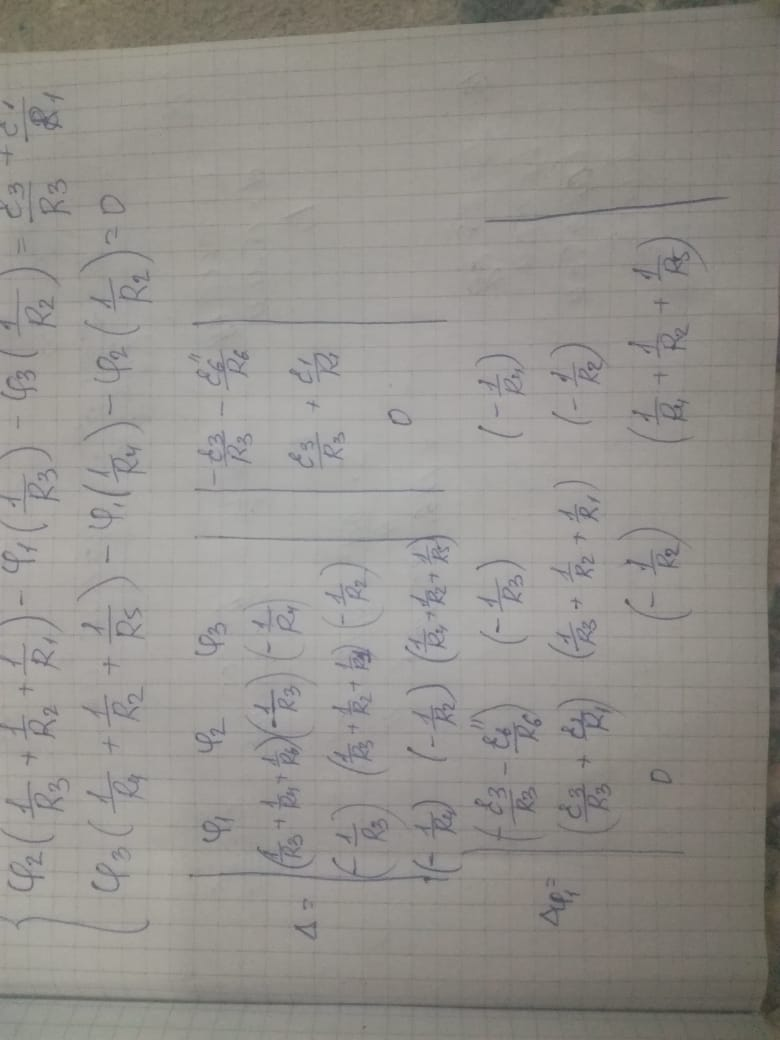 φ2 (1/R3 + 1/R2 + 1/R1) − φ1 (1/R3) − φ3 (1/R2) = ε3/R3 + ε1'/R1
φ3 (1/R4 + 1/R2 + 1/R5) − φ1 (1/R4) − φ2 (1/R2) = 0
φ1 φ2 φ3
Δ = | (1/R3 + 1/R4 + 1/R6) (−1/R3) (−1/R4) | | −ε3/R3 − ε6''/R6 |
(−1/R3) (1/R3 + 1/R2 + 1/R1) (−1/R2) | | ε3/R3 + ε1'/R1 |
(−1/R4) (−1/R2) (1/R4 + 1/R2 + 1/R5) | | 0 |
Δφ1 = | (−ε3/R3 − ε6''/R6) (−1/R3) (−1/R4) |
(ε3/R3 + ε1'/R1) (1/R3 + 1/R2 + 1/R1) (−1/R2)
0 (−1/R2) (1/R4 + 1/R2 + 1/R5)